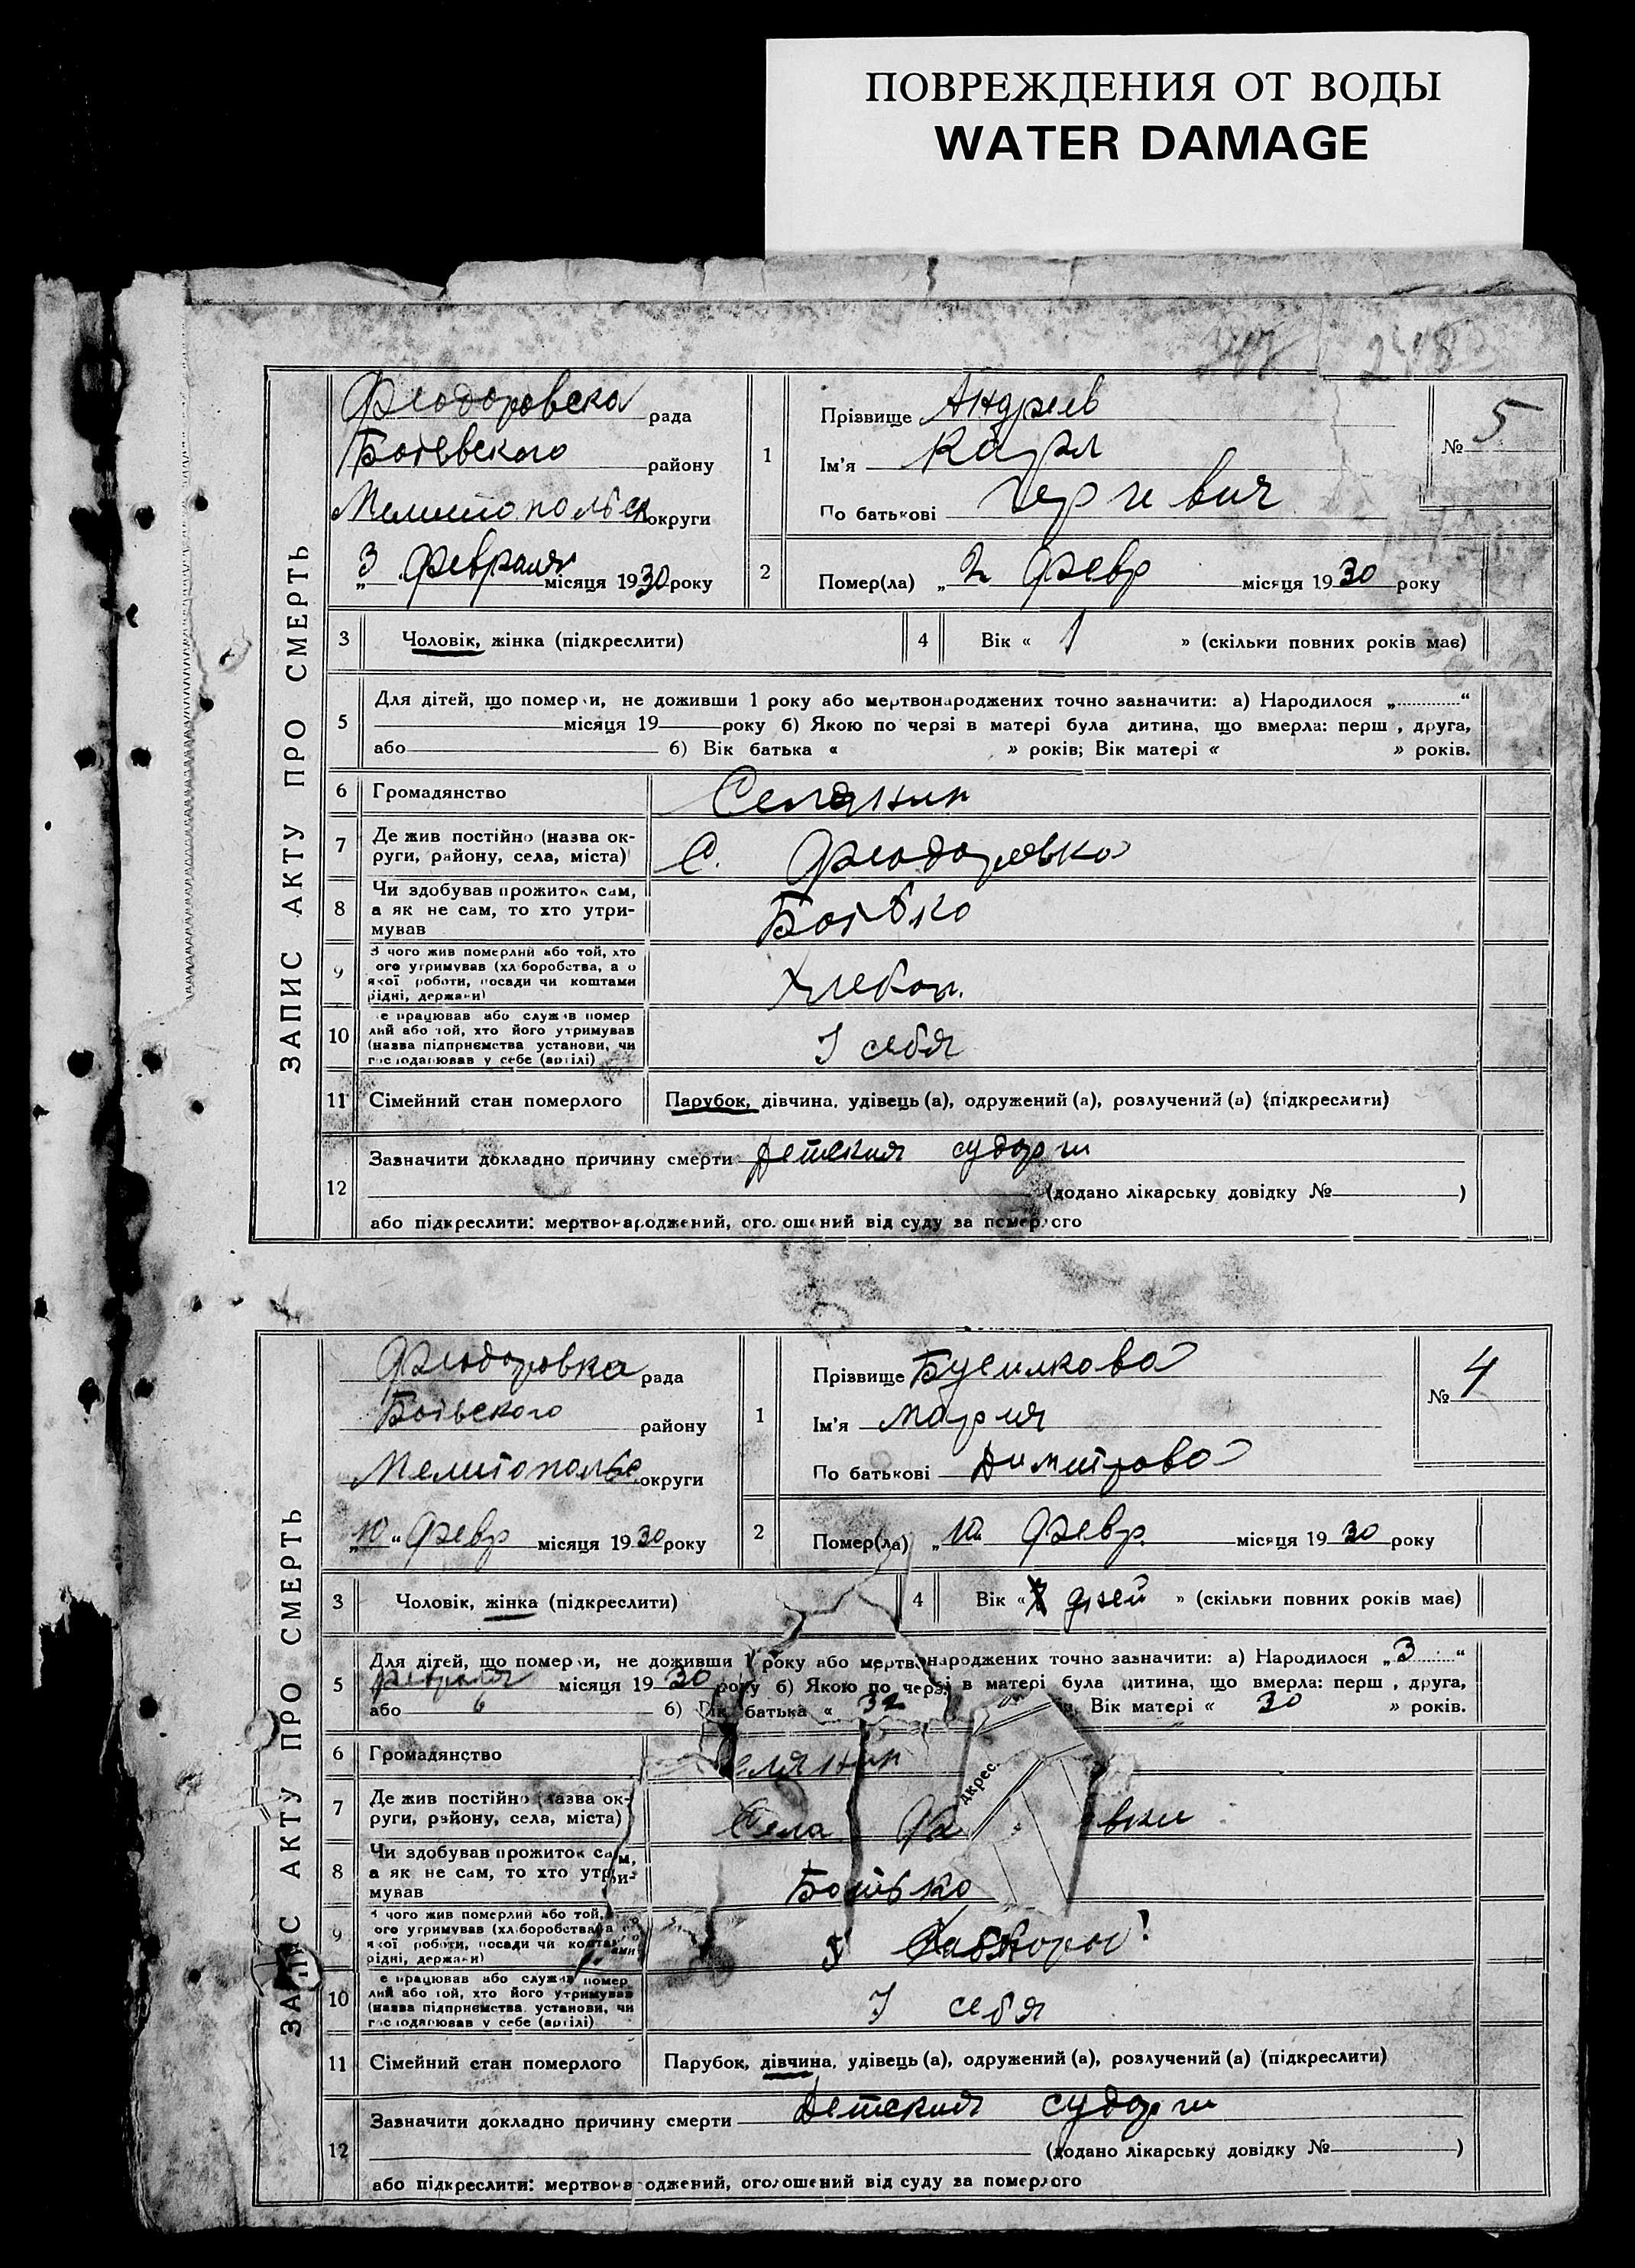 ПОВРЕЖДЕНИЯ ОТ ВОДЫ
WATER DAMAGE
ЗАПИС АКТУ ПРО СМЕРТЬ
Феодоровска рада
Ботевского району
Мелитопольск округи
„3 февраля місяця 1930 року
1 Прізвище Андреев
Ім'я Карл
По батькові
№ 5
2 Помер(ла) „2 февр місяця 1930 року
3 Чоловік, жінка (підкреслити)
4 Вік « 1 » (скільки повних років має)
5 Для дітей, що померли, не доживши 1 року або мертвонароджених точно зазначити: а) Народилося „ “
місяця 19 року б) Якою по черзі в матері була дитина, що вмерла: перш , друга,
або б) Вік батька « » років; Вік матері « » років.
6 Громадянство Селянин
7 Де жив постійно (назва ок-
руги, району, села, міста) С. Феодоровка
8 Чи здобував прожиток сам,
а як не сам, то хто утри-
мувавБотько
9 З чого жив померлий або той, хто
ого утримував (хліборобства, а о
якої роботи, посади чи коштами
рідні, держави) Хлебоп.
10 е працював або служив помер
лий або той, хто його утримував
(назва підприємства установи, чи
господарював у себе (артілі) У себя
11 Сімейний стан померлого Парубок, дівчина, удівець (а), одружений (а), розлучений (а) (підкреслити)
12 Зазначити докладно причину смерти Детския судорги
(додано лікарську довідку № )
або підкреслити: мертвонароджений, оголошений від суду за померлого
ЗАПИС АКТУ ПРО СМЕРТЬ
Феодоровка рада
Ботьвского району
Мелитопольс округи
„10“ февр місяця 1930 року
1 Прізвище Бусилкова
Ім'я Мария
По батькові Димитрова
№ 4
2 Помер(ла) „10 февр. місяця 1930 року
3 Чоловік, жінка (підкреслити)
4 Вік « дней » (скільки повних років має)
5 Для дітей, що померли, не доживши 1 року або мертвонароджених точно зазначити: а) Народилося „3“
февраля місяця 1930 року б) Якою по черзі в матері була дитина, що вмерла: перш , друга,
або 6 б) Вік батька « 32 Вік матері « 30 » років.
6 Громадянство елянин
7 Де жив постійно (назва ок-
руги, району, села, міста) Села Фе вки
дкрес.
8 Чи здобував прожиток сам,
а як не сам, то хто утри-
мував Ботько
9 чого жив померлий або той,
ого утримував (хліборобства, а
якої роботи, посади чи коштами
рідні, держави)
10 е працював або служив помер
лий або той, хто його утримував
(назва підприємства установи, чи
господарював у себе (артілі) У себя
11 Сімейний стан померлого Парубок, дівчина, удівець (а), одружений (а), розлучений (а) (підкреслити)
12 Зазначити докладно причину смерти Детския судорги
(додано лікарську довідку № )
або підкреслити: мертвонароджений, оголошений від суду за померлого